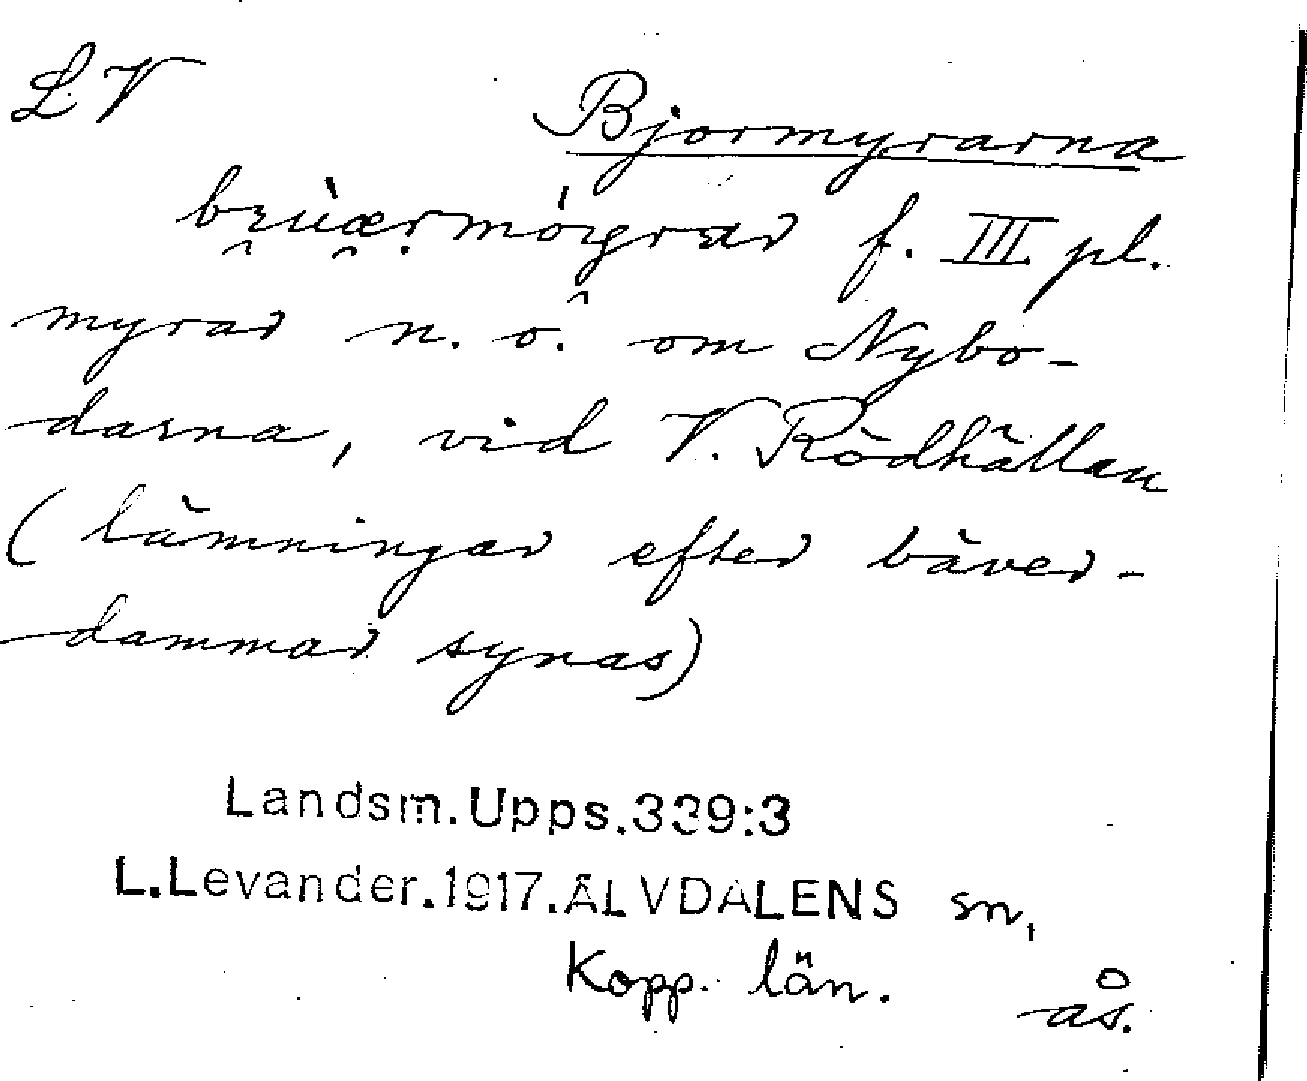 LV
Bjormyrarna
f. III pl.
myrar n. ö. om Nybo-
darna, vid V. Rödhällan
(lämningar efter bäver-
dammar synas)
Landsm.Upps.339:3
L.Levander.1917.ÄLVDALENS sn,
Kopp. län.
ås.